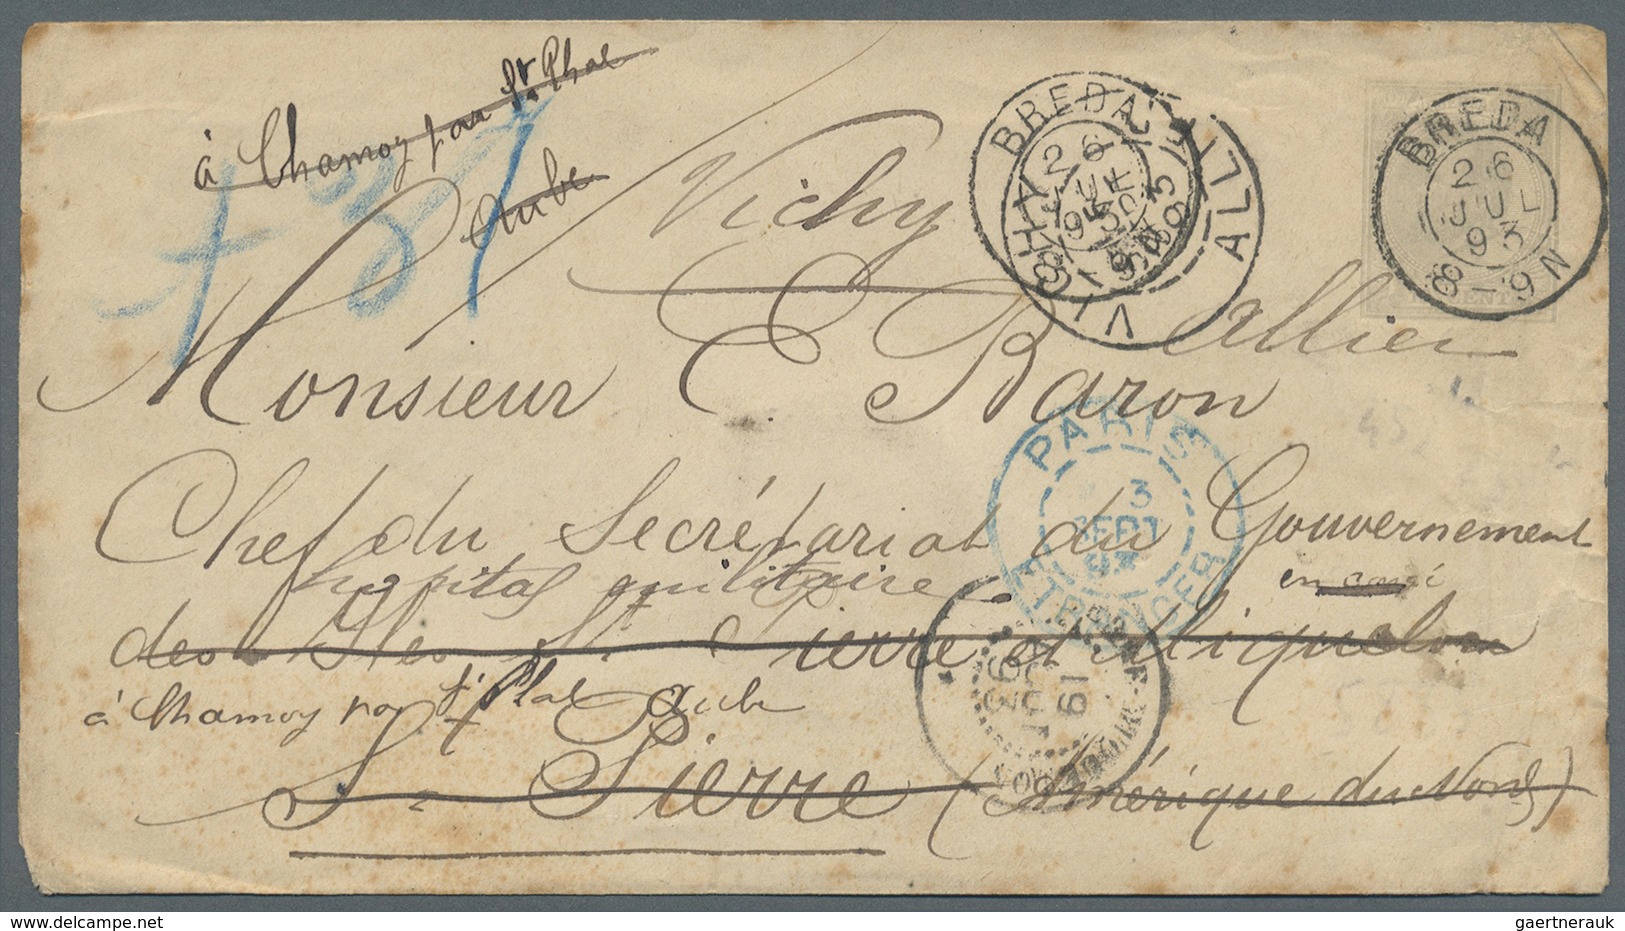 à Chamoy par St Phal
Aube
+ 37
Vichy
Allier
BREDA
26
JUL
93
8-9N
BREDA
26
JUL
93
8-9N
VICHY ALLIER
Monsieur E. Baron
PARIS
3
SEPT
93
ETRANGER
Chef du Secrétariat du Gouvernement
hôpital militaire
en congé
des Iles St Pierre et Miquelon
à Chamoy par St Phal Aube
St Pierre (Amérique du Nord)
gaertnerauk @ www.delcampe.net